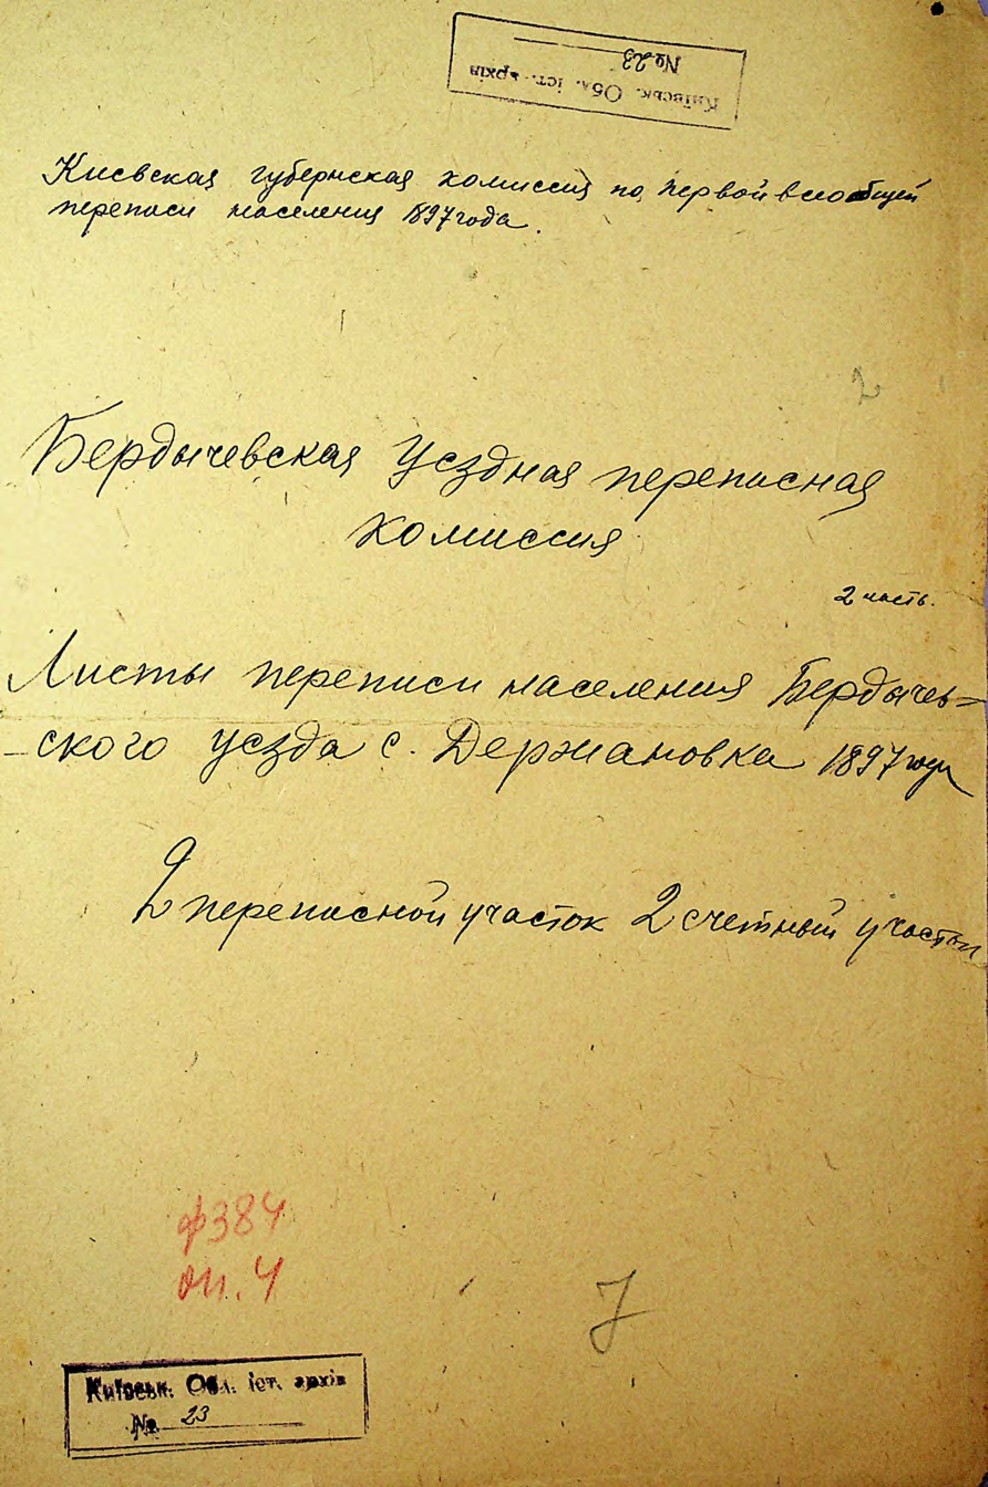 Київськ. Обл. іст. архів
№ 23
Киевская губернская комиссия по первой всеобщей
переписи населения 1897 года.
2
Бердычевская Уездная переписная
комиссия
2 часть.
Листы переписи населения Бердычев=
-ского уезда с. Держановка 1897 года
2 переписной участок 2 счетный участок
ф 384
оп. 4
7
Київськ. Обл. іст. архів
№ 23